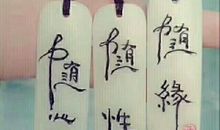 随心
随性
随緣